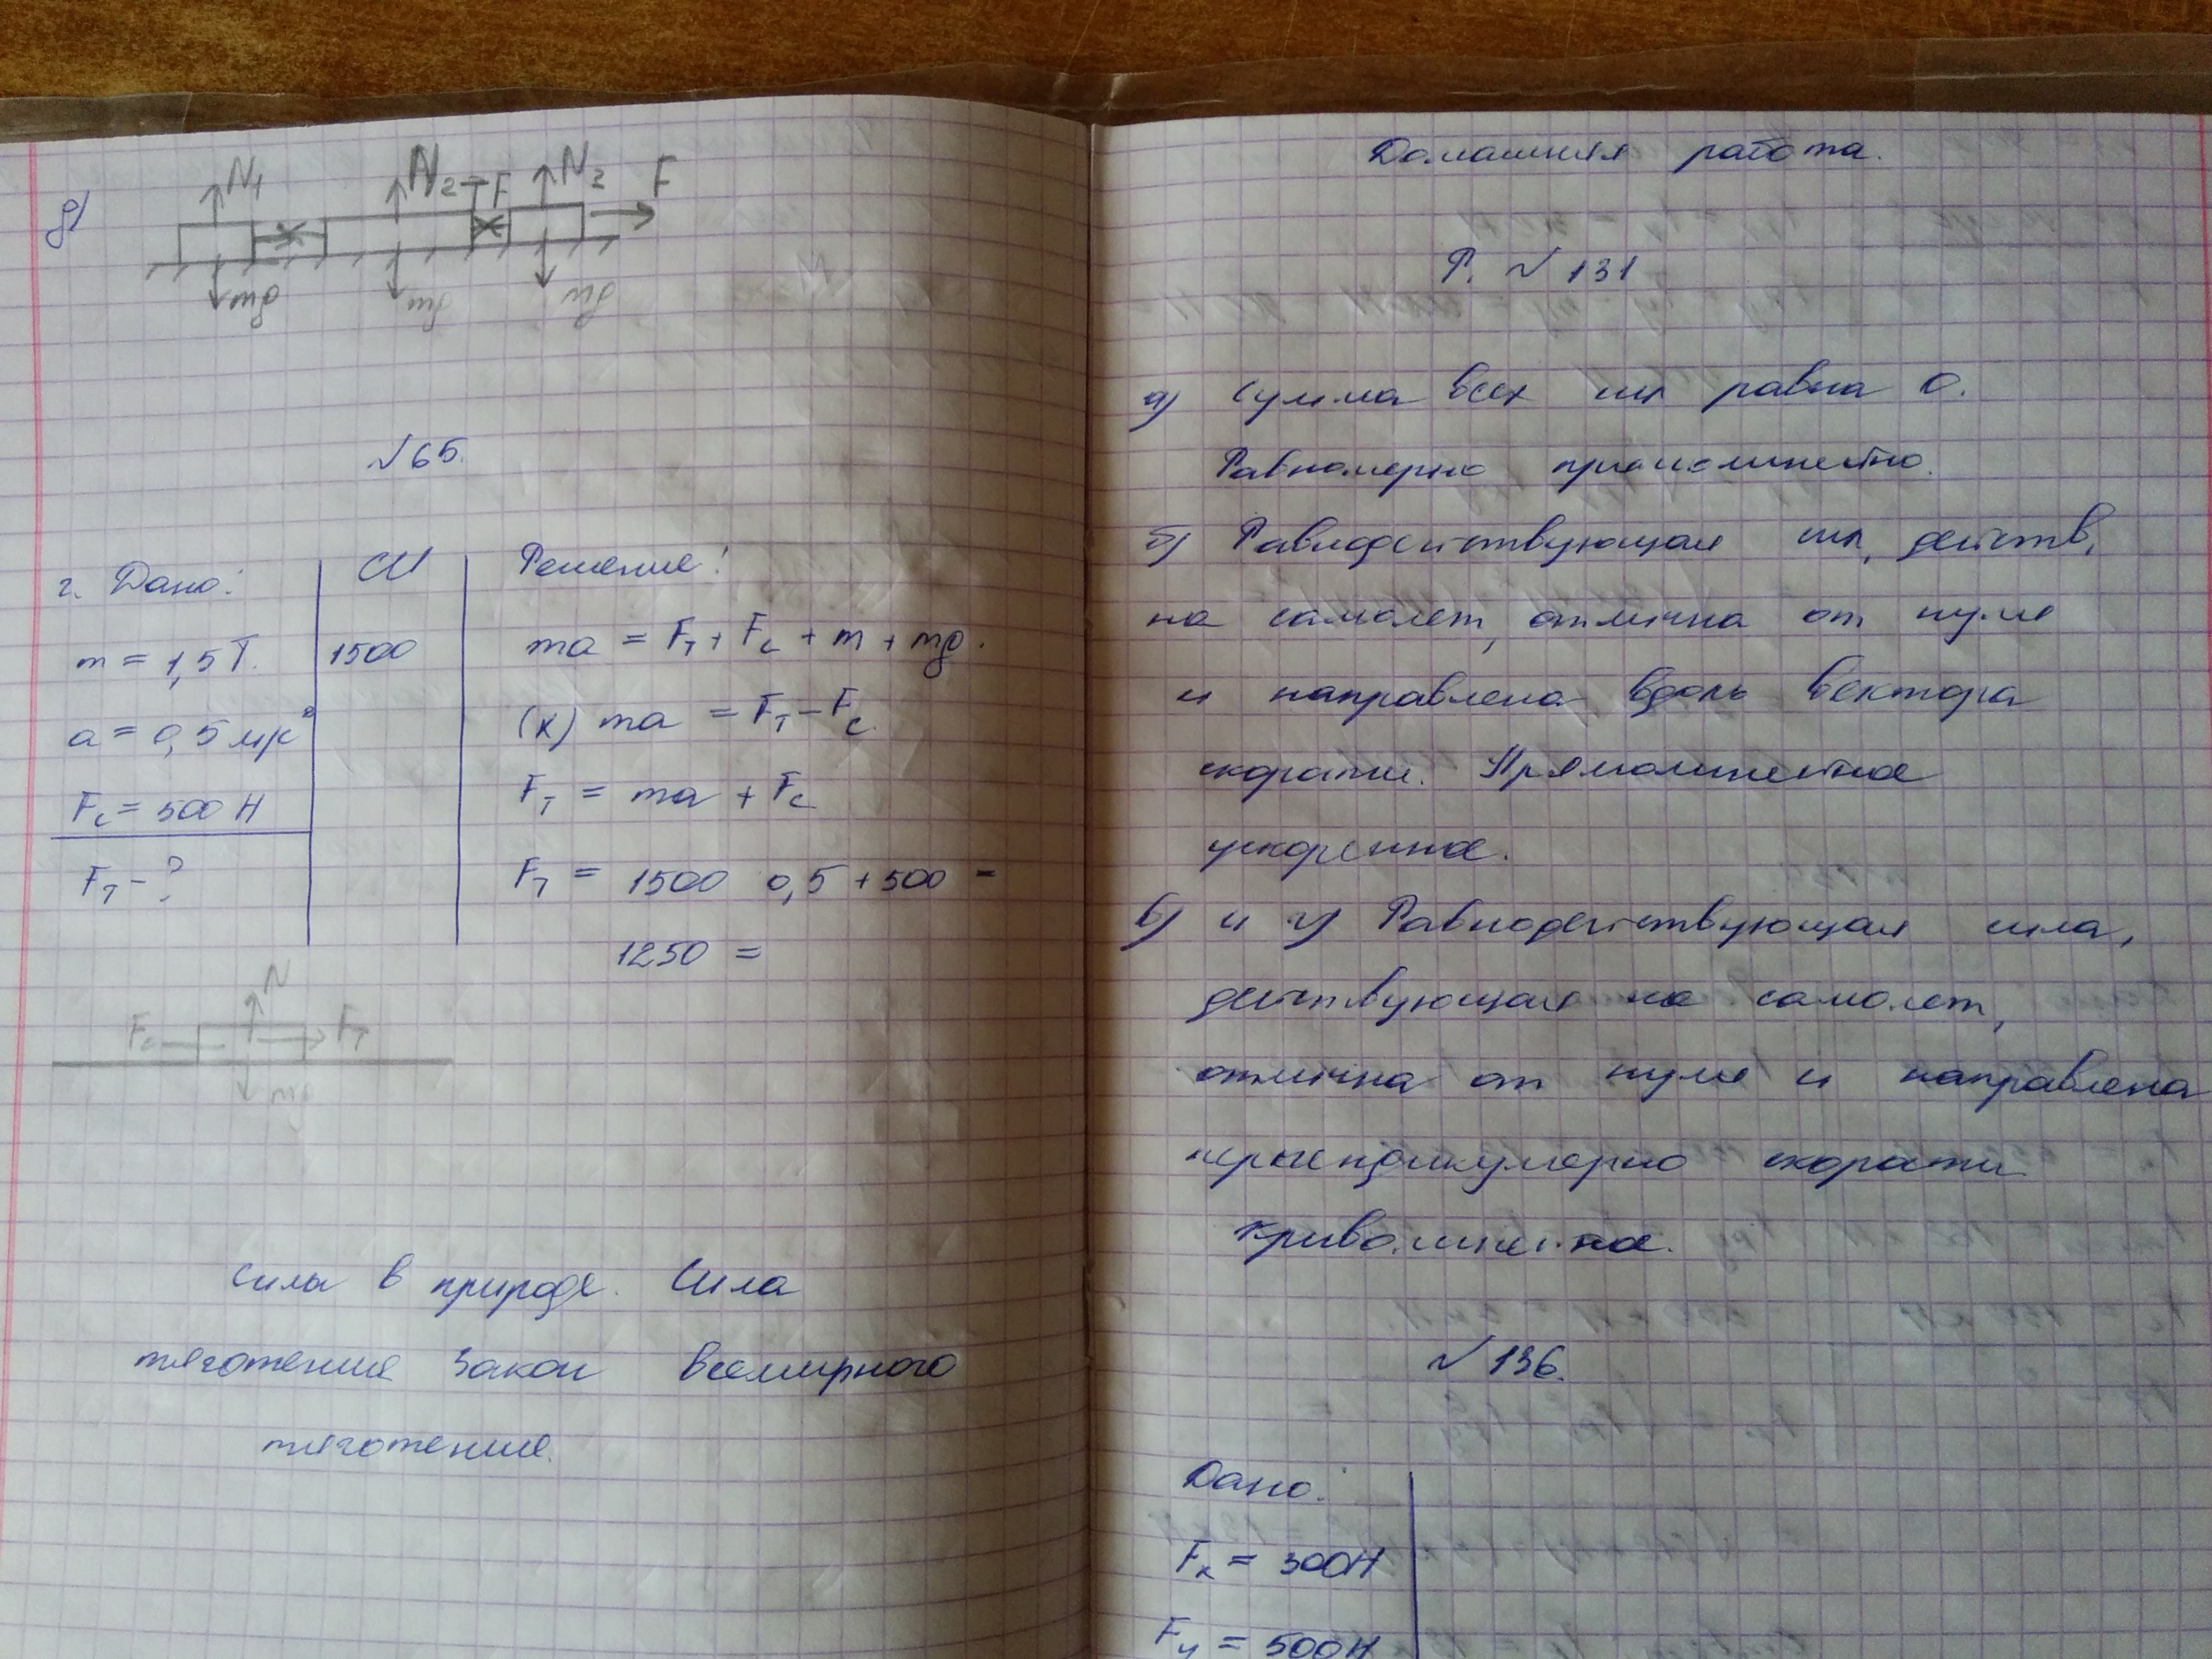 д)
N₁ N₂ F N₂ F
mg mg mg
№65.
г. Дано: СИ Решение!
m = 1,5 Т. 1500 ma = Fт + Fс + m + mg.
a = 0,5 м/с² (x) ma = Fт − Fс
Fс = 500 Н Fт = ma + Fс
Fт − ? Fт = 1500 0,5 + 500 =
1250 =
N
Fс Fт
mg
Силы в природе. Сила
тяготения Закон Всемирного
тяготения.
Домашняя работа.
Р. № 131
а) Сумма всех сил равна 0.
Равномерно прямолинейно.
б) Равнодействующая сил, действ,
на самолет, отлична от нуля
и направлена вдоль вектора
скорости. Прямолинейное
ускоренное.
в) и г) Равнодействующая сила,
действующая на самолет,
отлична от нуля и направлена
перпендикулярно скорости
криволинейное.
№ 136.
Дано:
Fх = 300Н
Fу = 500Н